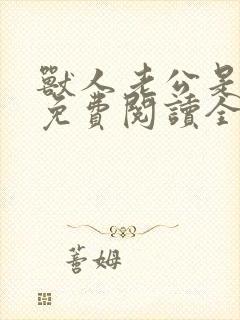 獸人老公是
免費閱讀全
薔姆